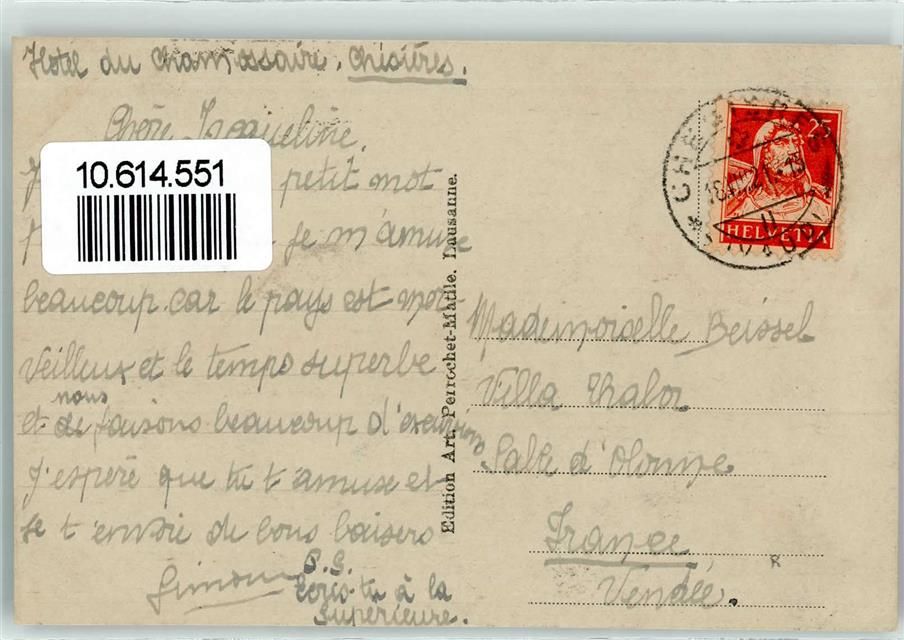 Hotel du Chamossaire. Chésières.
Chère Jacqueline,
J
10.614.551
petit mot
je m'amuse
beaucoup car le pays est mer
veilleux et le temps superbe
et nous faisons beaucoup d'excursions
J'espère que tu t'amuse et
je t'envoie de bons baisers
Simone
P.S.
Ecris-tu à la
Supérieure.
Edition Art. Perrochet-Matile, Lausanne.
25
HELVETIA
CHESIERES
Mademoiselle Beissel
Villa Thalor
Sable d'Olonne
France
Vendée.
R